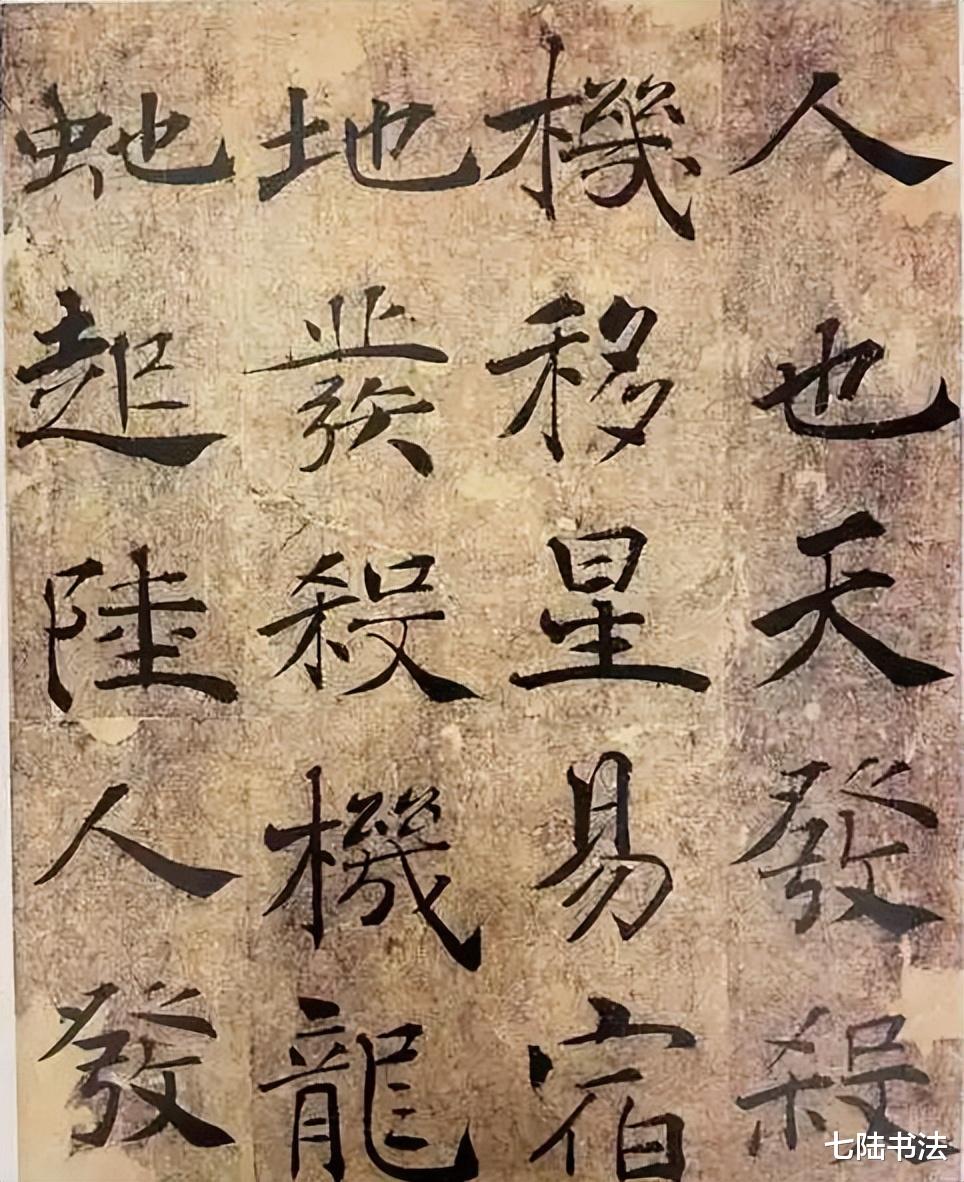 人也天發殺
機移星易宿
地發殺機龍
虵起陸人發
七陆书法